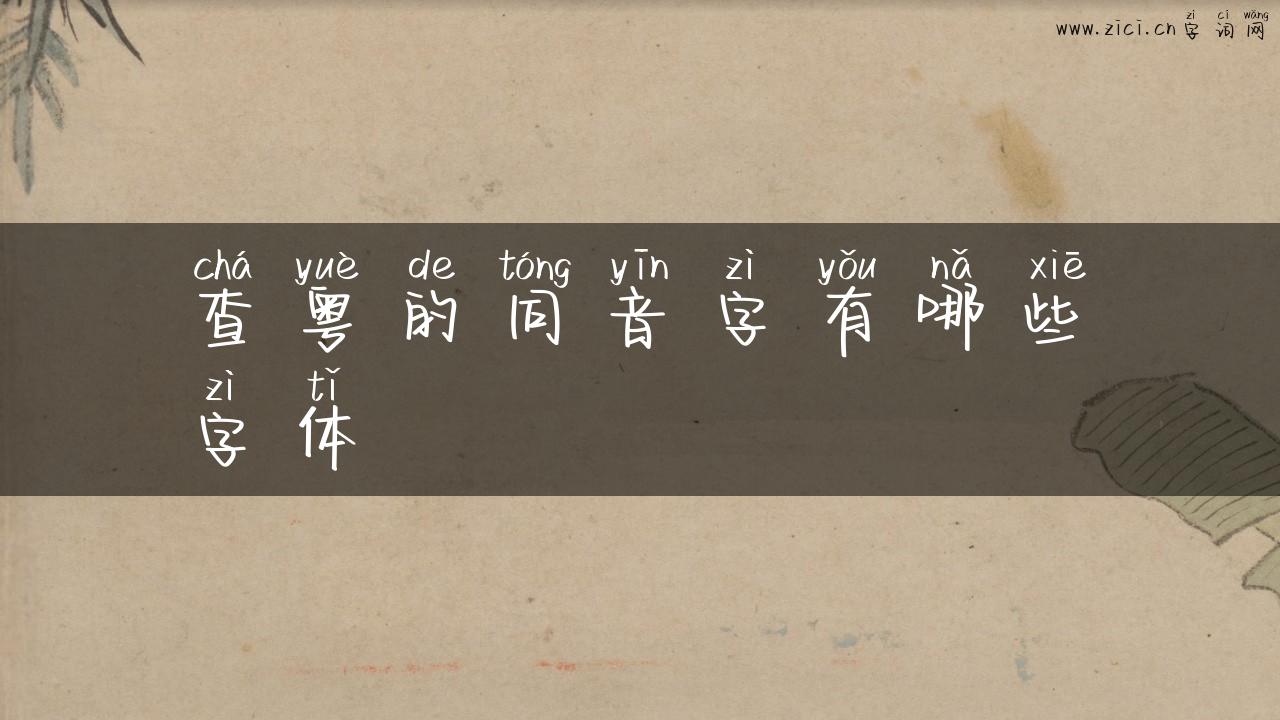 zì cí wǎng
www.zici.cn 字词网
chá yuè de tóng yīn zì yǒu nǎ xiē
查粤的同音字有哪些
zì tǐ
字体